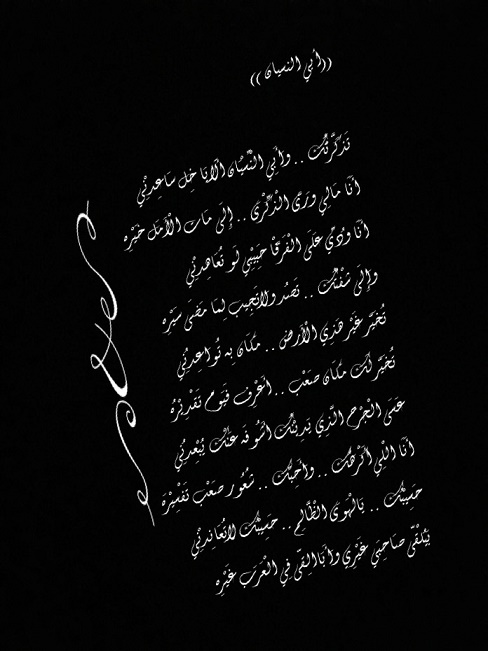 ((أبي النسيان))
تَذكَّرتُك .. وأَبي النِّسْيَان الْايَا خِل سَاعِدنِي
أَنَا مَالِي ورَى الْذِكْرَى .. إِلَى مَات الْأَمَل خَيْرَه
أَنَا وُدِّي عَلَى الْفَرْقَا حَبِيْبِي لَو تُعَاهِدنِي
وإِلَى شَفْتُك .. تَصُد ولَاتَجِيب لِمَا مَضَى سَيْره
تُخَيَّر غَيْر هَذِي الْأَرض .. مَكَان بِه تُواعِدنِي
تُخَيَّر لَك مَكَان صَعْب .. أَعْرِف فَيَوم تَقْدِيْرَه
عَسَى الْجُرْح الَّذِي يَدِينُك أَشُوفَه عَنْك يُبْعِدنِي
أَنَا الْلِي أَكْرَهَك .. وأَحِبُّك .. شُعُور صَعْب تَفْسِيْرَه
حَسِيْبُك .. يَالْهَوى الْظَّالِم .. حَسِيْبُك لاتُعَانِدنِي
يَلْقَى صَاحِبِي غَيْرِي وأَنَاالِقَى فِي الْعَرَب غَيْرِه